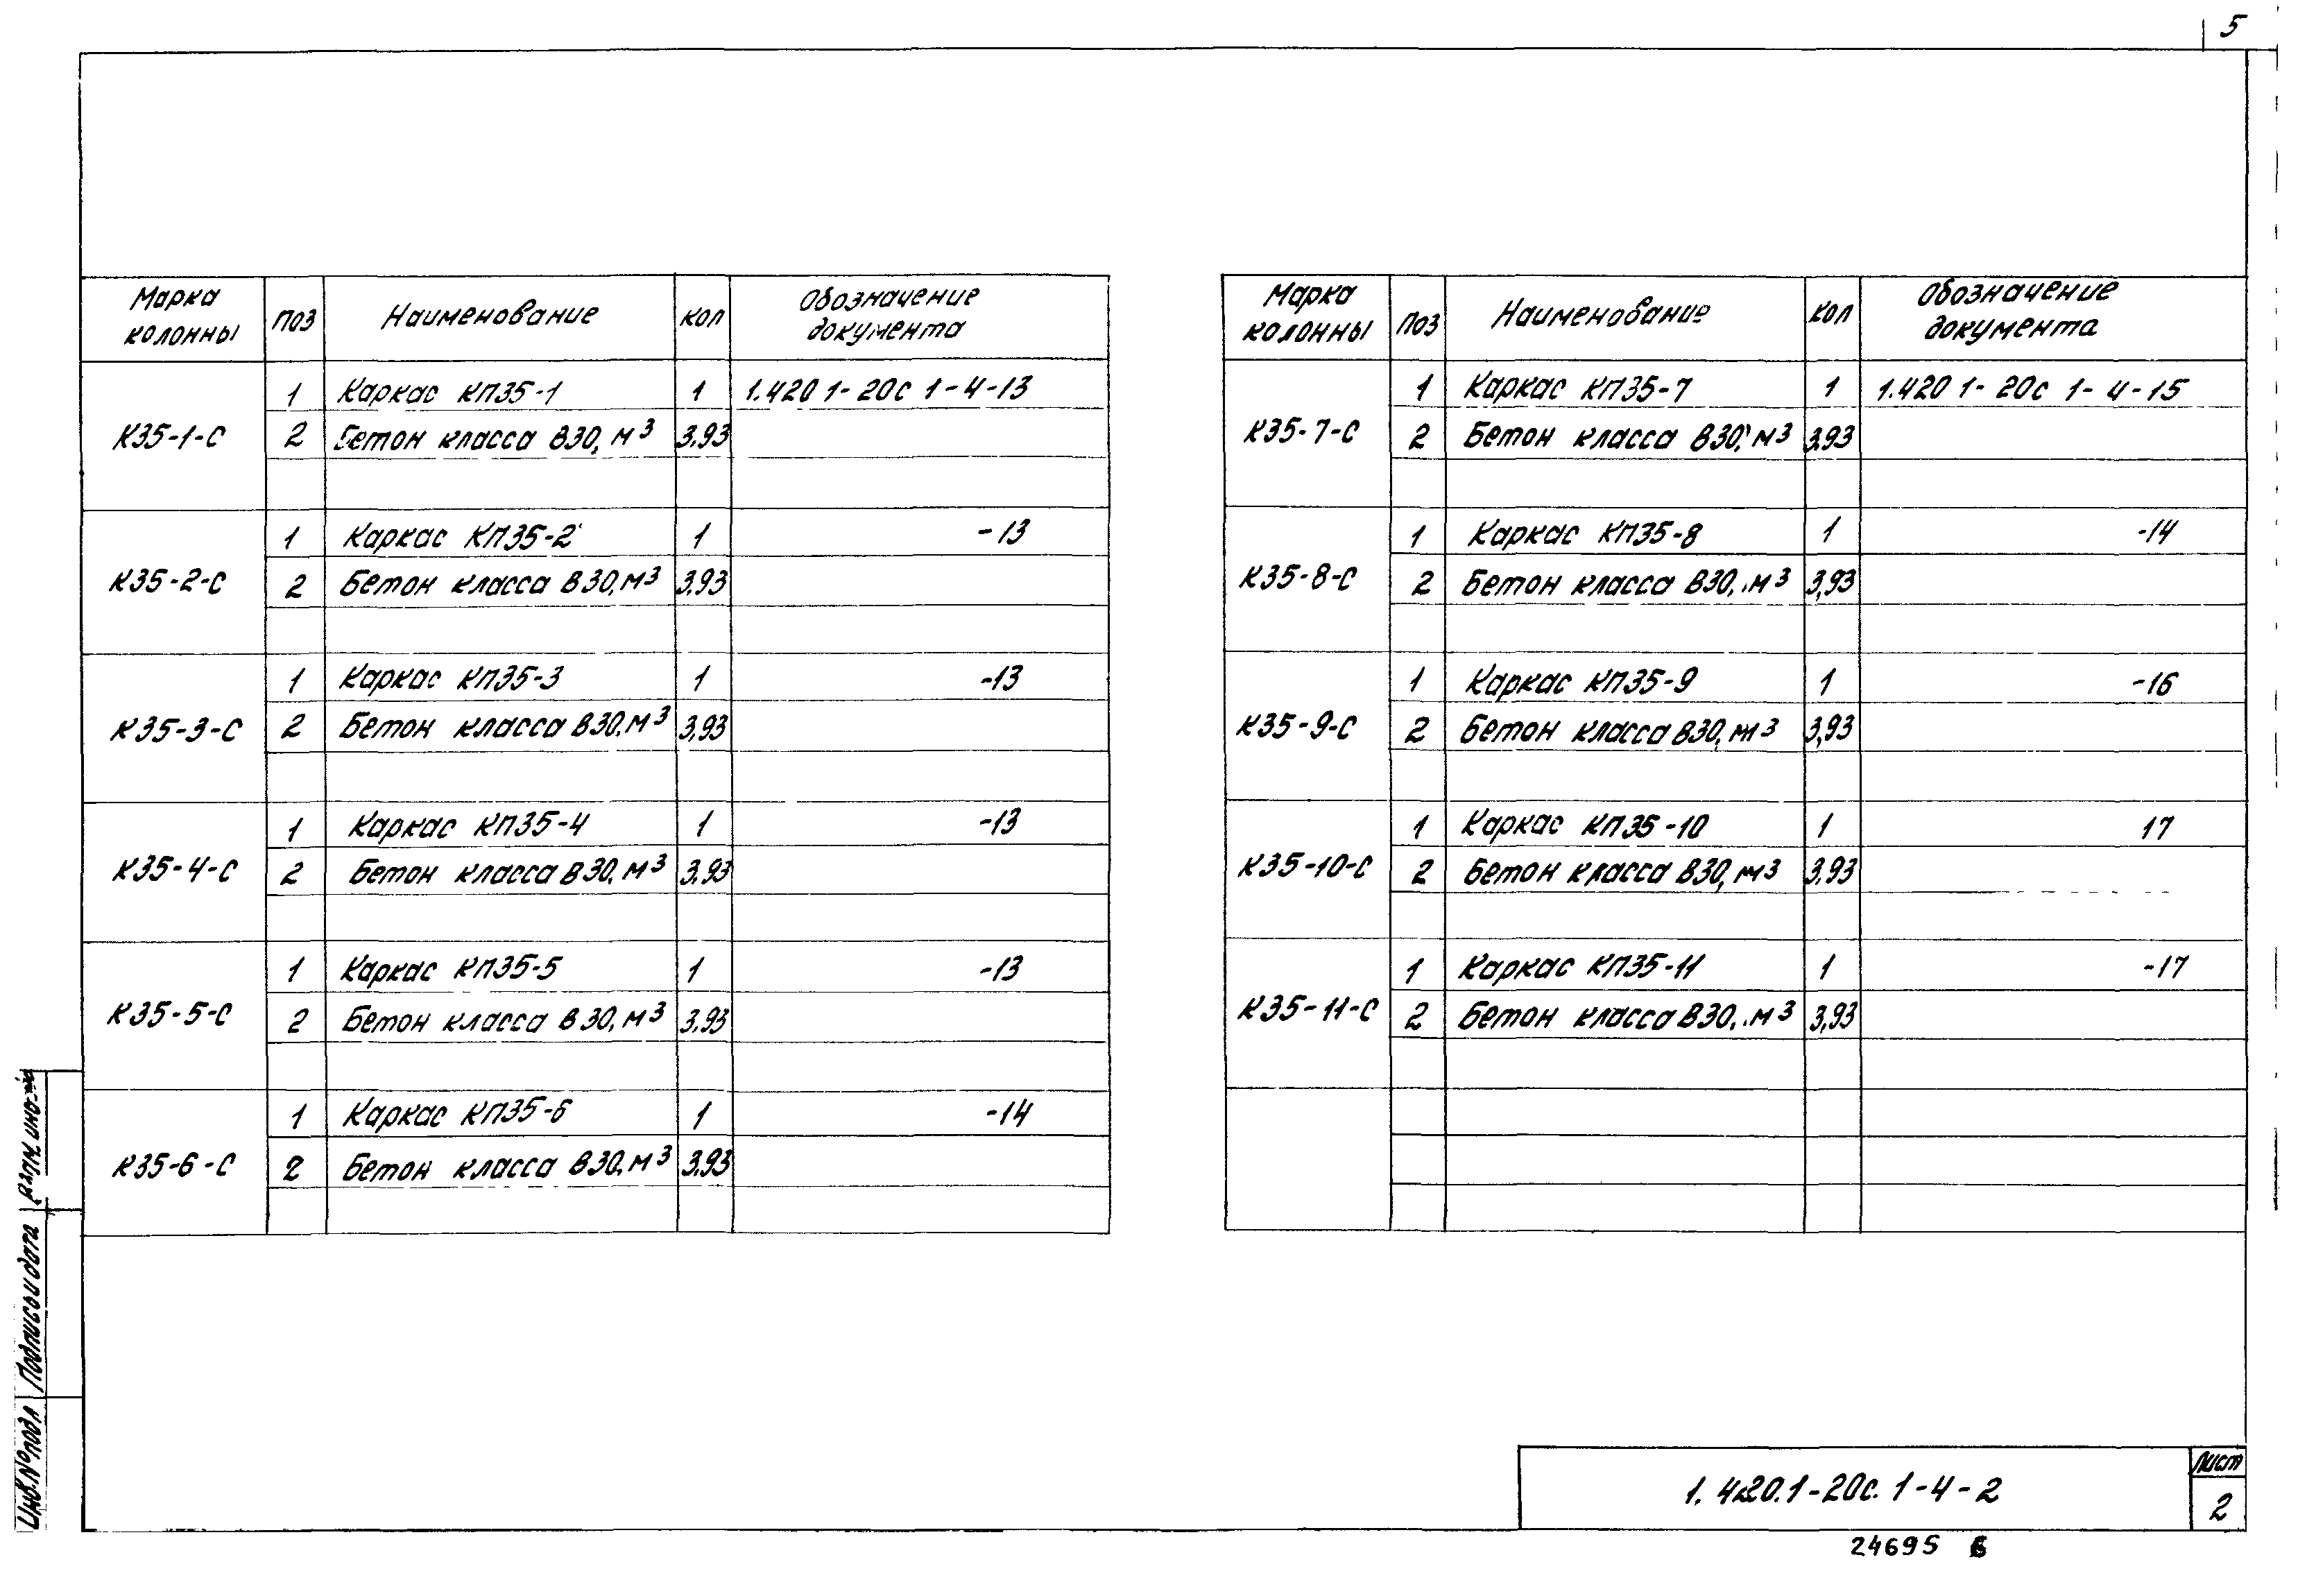 5
Марка колонны | Поз | Наименование | Кол | Обозначение документа
К35-1-С | 1 | Каркас КП35-1 | 1 | 1.420 1-20с 1-4-13
2 | Бетон класса В30, м³ | 3.93
К35-2-С | 1 | Каркас КП35-2 | 1 | -13
2 | Бетон класса В30, м³ | 3.93
К35-3-С | 1 | Каркас КП35-3 | 1 | -13
2 | Бетон класса В30, м³ | 3,93
К35-4-С | 1 | Каркас КП35-4 | 1 | -13
2 | Бетон класса В30, м³ | 3.93
К35-5-С | 1 | Каркас КП35-5 | 1 | -13
2 | Бетон класса В30, м³ | 3.93
К35-6-С | 1 | Каркас КП35-6 | 1 | -14
2 | Бетон класса В30, м³ | 3.93
Марка колонны | Поз | Наименование | Кол | Обозначение документа
К35-7-С | 1 | Каркас КП35-7 | 1 | 1.420 1-20с 1-4-15
2 | Бетон класса В30, м³ | 3.93
К35-8-С | 1 | Каркас КП35-8 | 1 | -14
2 | Бетон класса В30, м³ | 3,93
К35-9-С | 1 | Каркас КП35-9 | 1 | -16
2 | Бетон класса В30, м³ | 3,93
К35-10-С | 1 | Каркас КП35-10 | 1 | 17
2 | Бетон класса В30, м³ | 3.93
К35-11-С | 1 | Каркас КП35-11 | 1 | -17
2 | Бетон класса В30, м³ | 3,93
Инв.№ подл | Подпись и дата | Взам. инв.
1.420.1-20с. 1-4-2
Лист
2
24695 6